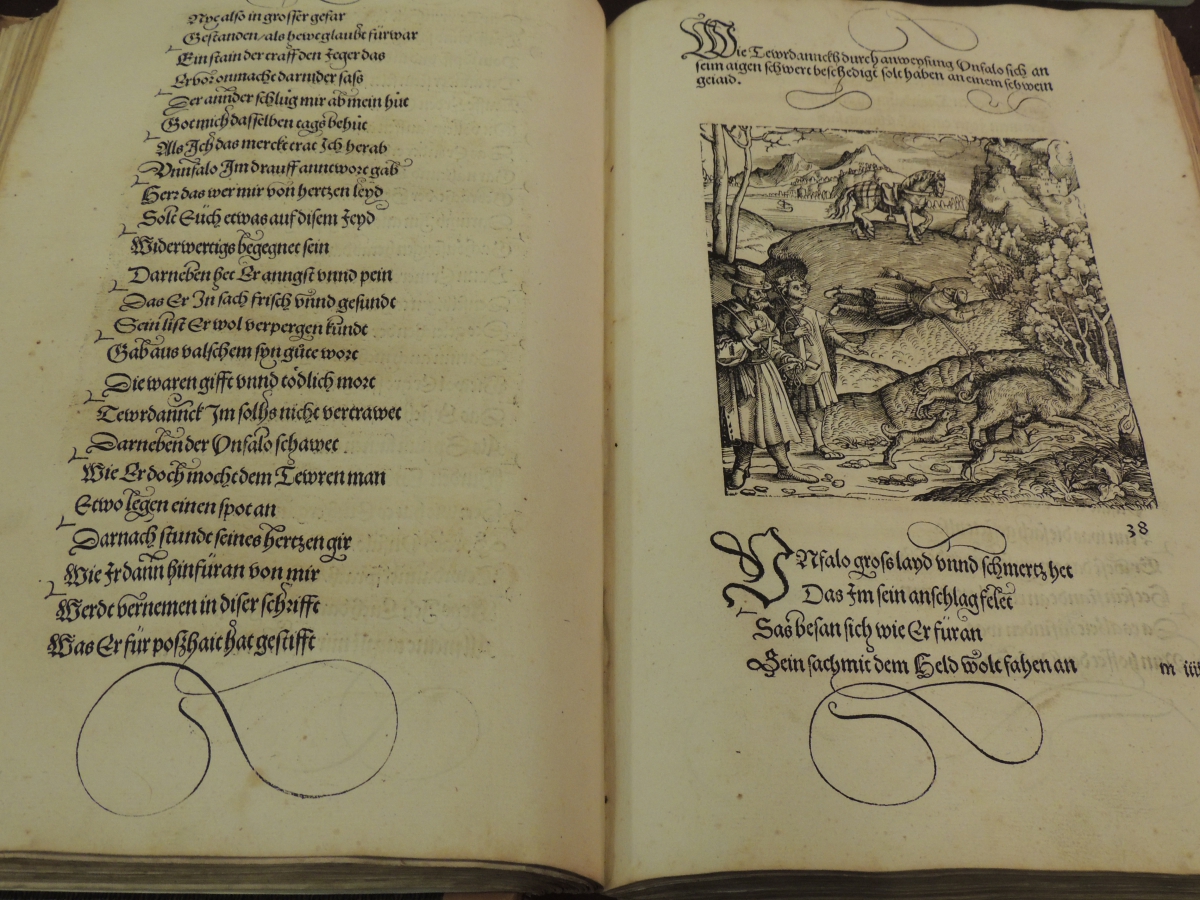 Nye also in grosser gefar
Gestanden/als hewt glaubt fürwar
Ein stain der traff den Jeger das
Er vor onmacht darnider sass
Der annder schlůg mir ab mein hůt
Got mich dasselben tags behůt
Als Ich das merckt trat Ich herab
Vnnfalo Im drauff anntwort gab
Herr das wer mir von hertzen leyd
Solt Euch etwas auf disem Jeyd
Widerwertigs begegnet sein
Darneben het Er anngst vnnd pein
Das Er In sach frisch vnnd gesundt
Sein list Er wol verpergen kundt
Gab aus valschem syn gůte wort
Die waren gifft vnnd tödlich mort
Tewrdannck Im solhs nicht vertrawet
Darneben der Vnfalo schawet
Wie Er doch mocht dem Tewren man
Etwo legen einen spot an
Darnach stundt seines hertzen gir
Wie Ir dann hinfüran von mir
Werdt vernemen in diser schrifft
Was Er für poszhait hat gestifft
Wie Tewrdannckh durch anweysung Vnfalo sich an
seim aigen schwert beschedigt solt haben an einem schwein
geiaid.
38
VNfalo gross layd vnnd schmertz het
Das Im sein anschlag felet
Sas besan sich wie Er füran
Sein sach mit dem Held wolt fahen an
m iiii